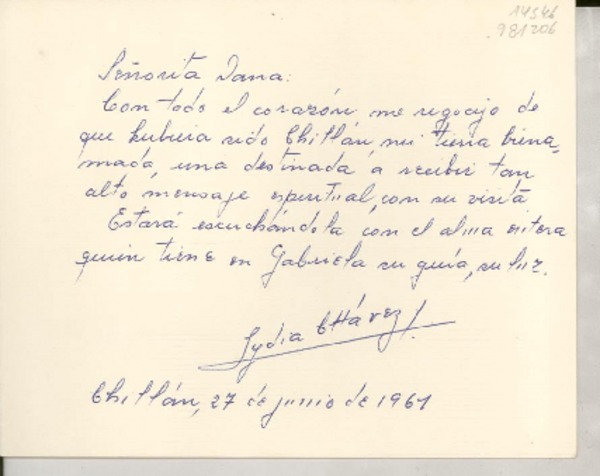 14546
981206
Señorita Dana:
Con todo el corazón me regocijo de
que hubiera sido Chillán, mi tierra biena-
mada, una destinada a recibir tan
alto mensaje espiritual, con su visita
Estará escuchándola con el alma entera
quien tiene en Gabriela su guía, su luz.
Lydia Chávez
Chillán, 27 de junio de 1961